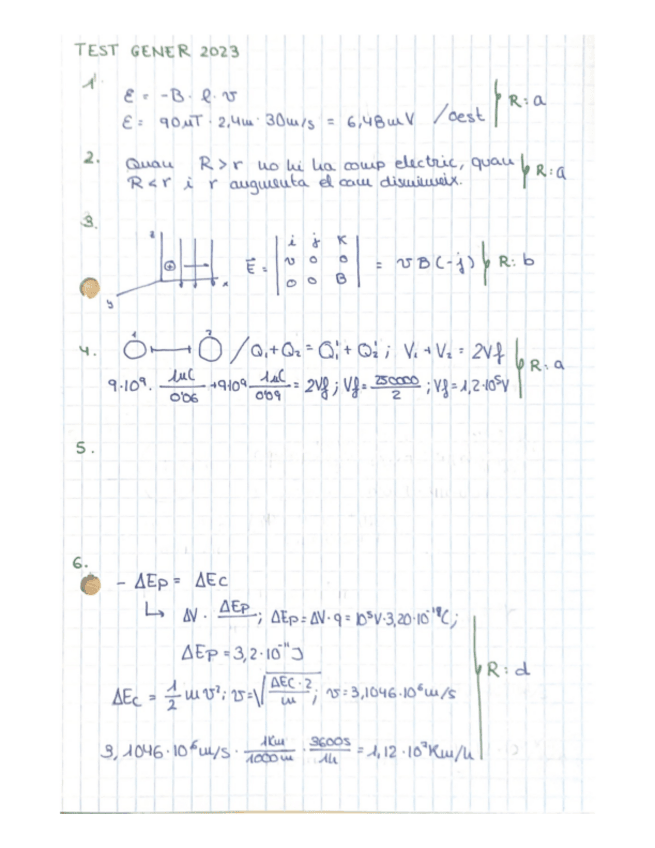 TEST GENER 2023
1.
ε = -B · l · v
ε = 90μT · 2,4m · 30m/s = 6,48mV /oest R: a
2. Quan R>r no hi ha camp electric, quan
R<r i r augmenta el camp disminueix. R: a
3.
z
x
y
E⃗ = | i j k | v 0 0 | 0 0 B | = vB(-j) R: b
4. 1 2 / Q₁+Q₂ = Q₁'+Q₂'; V₁+V₂ = 2Vf R: a
9·10⁹· 1μC/0'06 +9·10⁹ 1μC/0'09 = 2Vf; Vf= 250000/2; Vf=1,2·10⁵V
5.
6.
- ΔEp = ΔEc
↳ ΔV · ΔEp; ΔEp=ΔV·q=10⁵V·3,20·10⁻¹⁹C;
ΔEp = 3,2·10⁻¹⁴J
ΔEc = 1/2 m v²; v=√(ΔEC·2/m); v=3,1046·10⁶m/s R: d
3,1046·10⁶m/s · 1Km/1000m · 3600s/1h = 1,12·10⁷Km/h